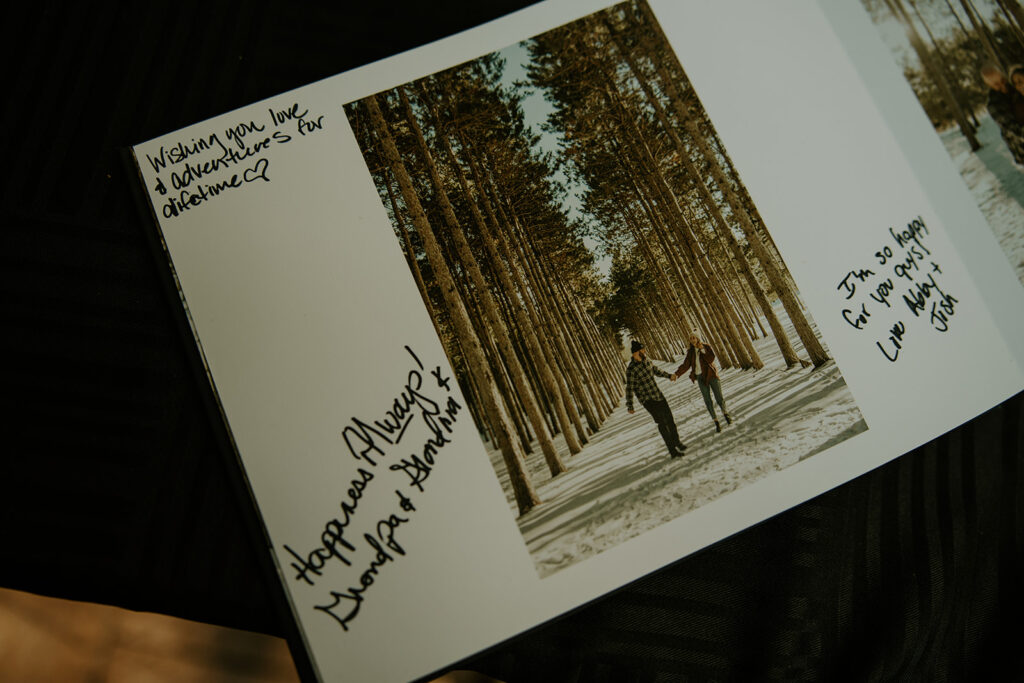 Wishing you love
& adventures for
a lifetime ♡
Happiness Always!
Grandpa & Grandma
I'm so happy
for you guys!
Love Abby +
Josh